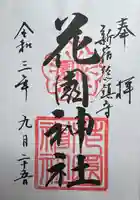 奉拝
新宿総鎮守
花園神社
令和三年九月二十五日